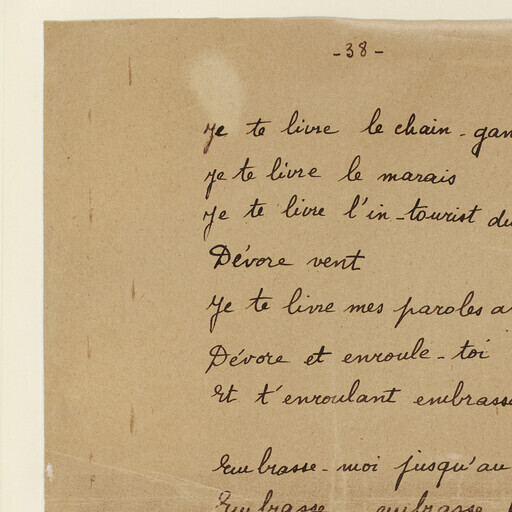 - 38 -
Je te livre le chain-gan
Je te livre le marais
Je te livre l'in-tourist du
Dévore vent
Je te livre mes paroles a
Dévore et enroule-toi
Et t'enroulant embrasse
Embrasse-moi jusqu'au
Embrasse embrasse